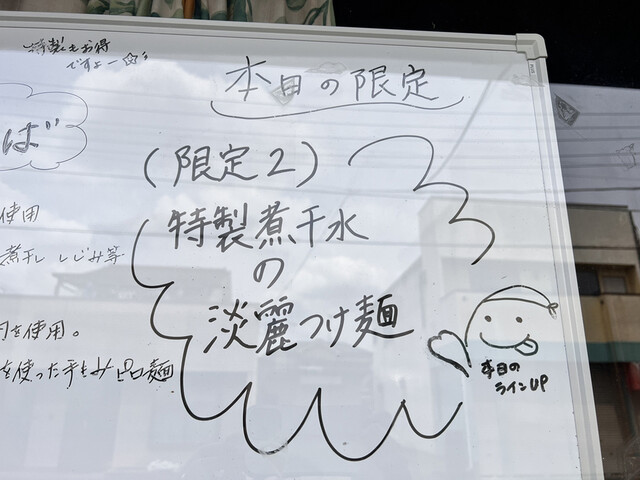 特製もお得
ですよー☆
本日の限定
ば
(限定2)
特製煮干水
の
淡麗つけ麺
使用
煮干し しじみ等
を使用。
を使った手もみ
麺
本日の
ラインUP